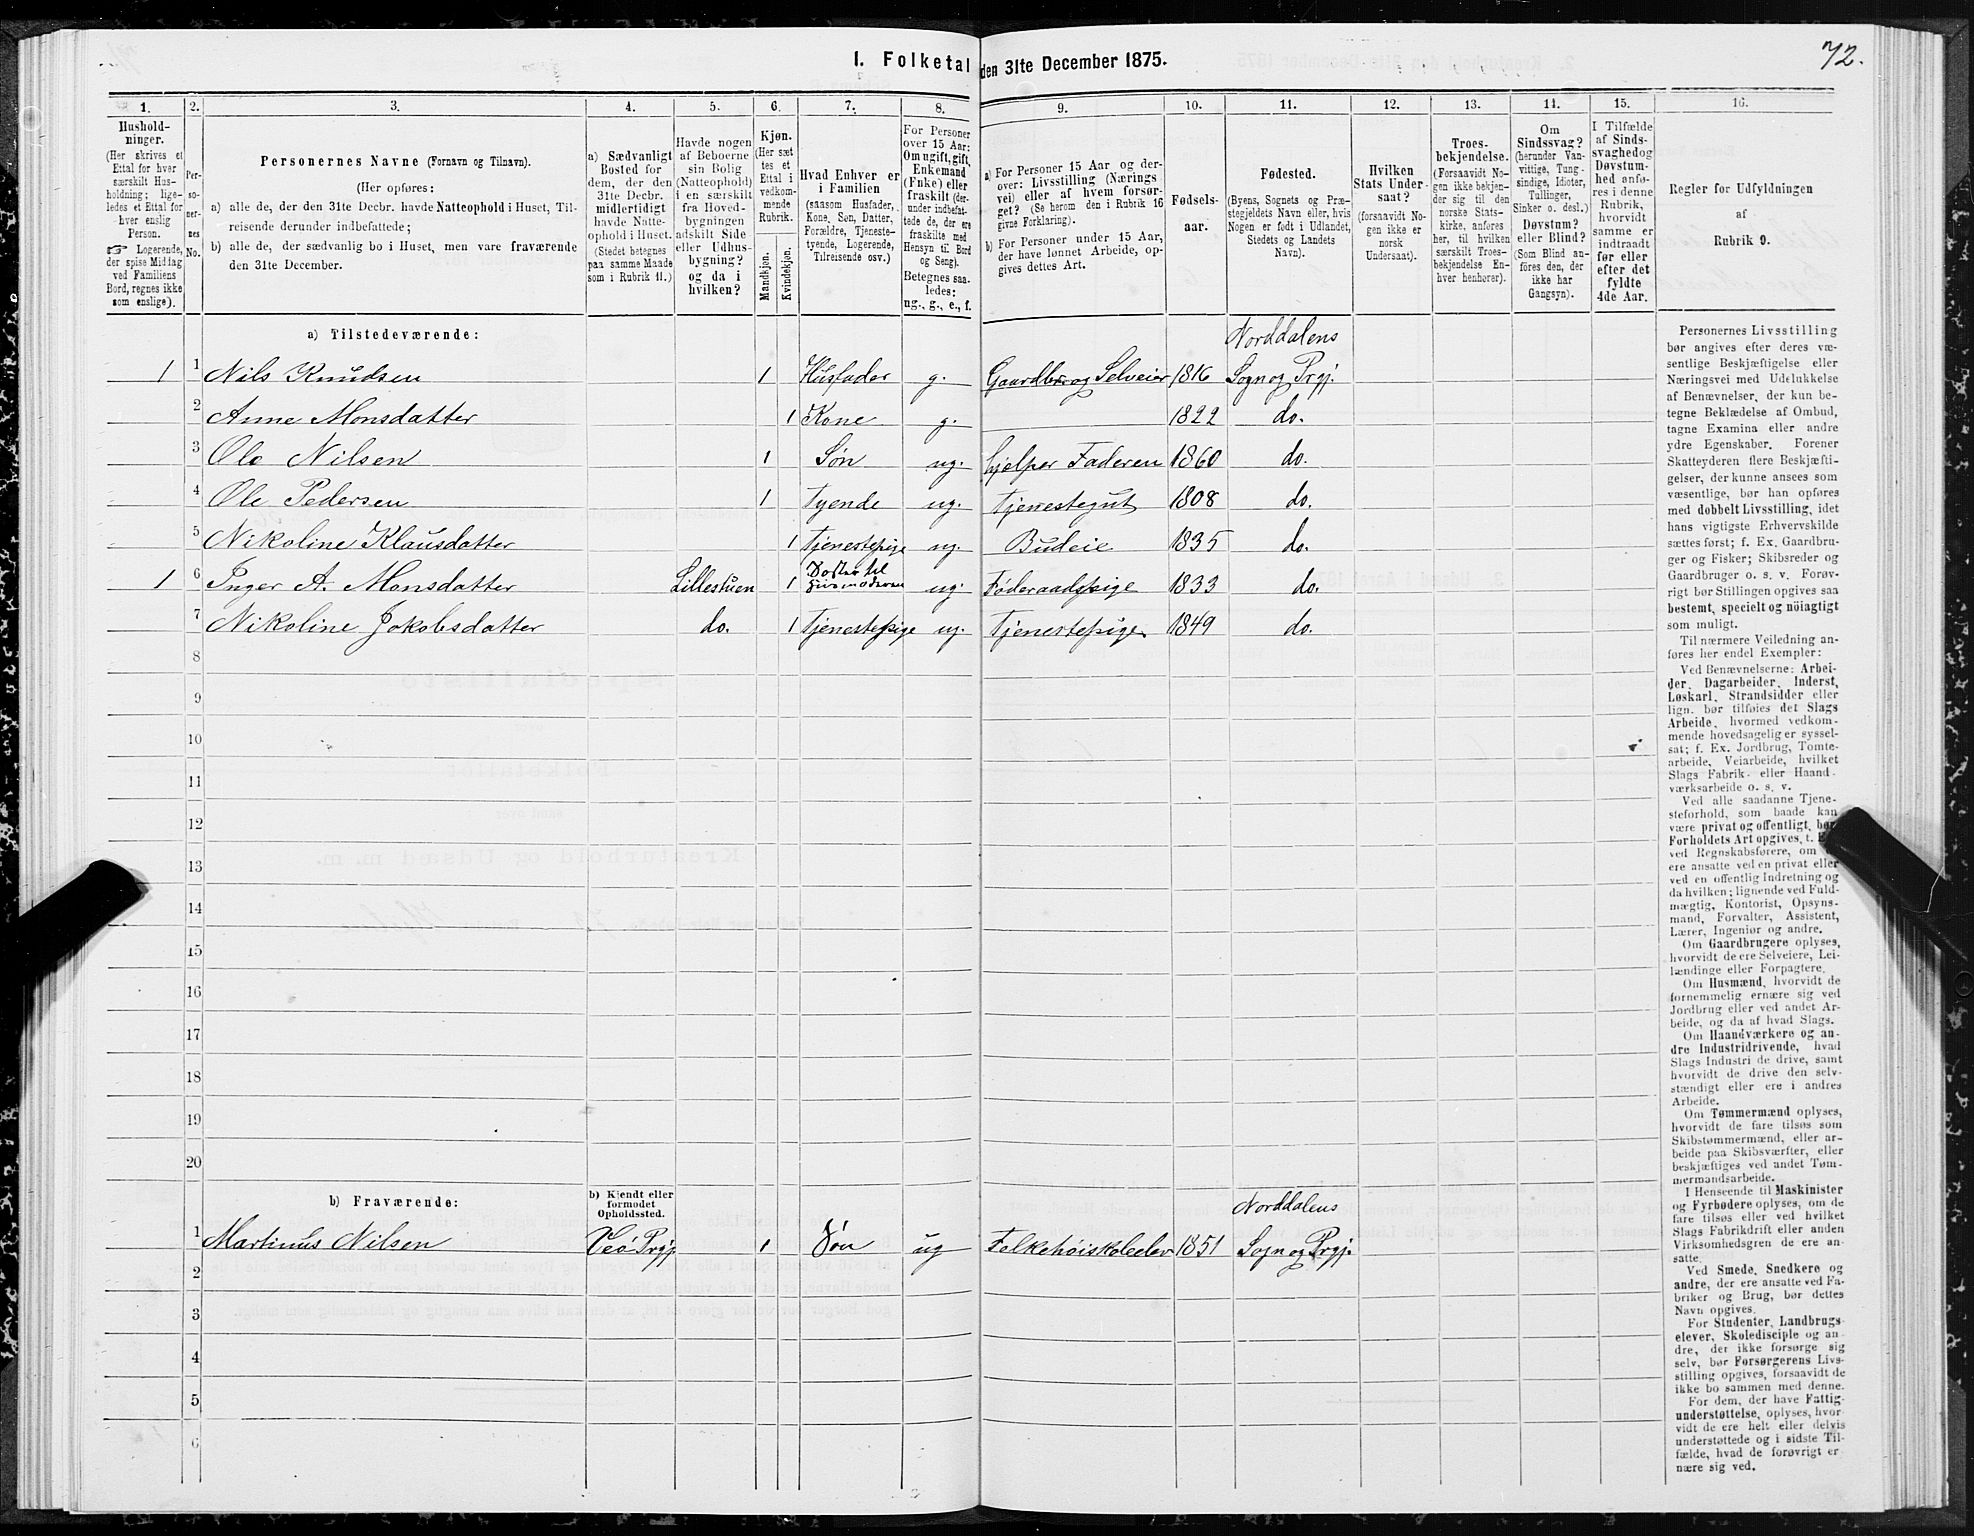 72.
I. Folketal den 31te December 1875.
1. 2. 3. 4. 5. 6. 7. 8. 9. 10. 11. 12. 13. 14. 15. 16.
Hushold-
ninger.
(Her skrives et
Ettal for hver
særskilt Hus-
holdning; lige-
ledes et Ettal for
hver enslig
Person.
☞ Logerende,
der spise Middag
ved Familiens
Bord, regnes ikke
som enslige).
Per-
so-
ner-
nes
No.
Personernes Navne (Fornavn og Tilnavn).
(Her opføres:
a) alle de, der den 31te Decbr. havde Natteophold i Huset, Til-
reisende derunder indbefattede;
b) alle de, der sædvanlig bo i Huset, men vare fraværende
den 31te December.
a) Sædvanligt
Bosted for
dem, der den
31te Decbr.
midlertidigt
havde Natte-
ophold i Huset.
(Stedet betegnes
paa samme Maade
som i Rubrik 11.)
Havde nogen
af Beboerne
sin Bolig
(Natteophold)
i en særskilt
fra Hoved-
bygningen
adskilt Side
eller Udhus-
bygning?
og da i
hvilken?
Kjøn.
(Her sæt
tes et
Ettal i
vedkom-
mende
Rubrik.
Mandkjøn.
Kvindekjøn.
Hvad Enhver er
i Familien
(saasom Husfader,
Kone, Søn, Datter,
Forældre, Tjeneste-
tyende, Logerende,
Tilreisende osv.)
For Personer
over 15 Aar:
Om ugift, gift,
Enkemand
(Enke) eller
fraskilt (der-
under indbefat-
tede de, der ere
fraskilte med
Hensyn til Bord
og Seng).
Betegnes saa-
ledes:
ug., g., e., f.
a) For Personer 15 Aar og der-
over: Livsstilling (Nærings
vei) eller af hvem forsør-
get? (Se herom den i Rubrik 16
givne Forklaring).
b) For Personer under 15 Aar,
der have lønnet Arbeide, op-
gives dettes Art.
Fødsels-
aar.
Fødested.
(Byens, Sognets og Præ-
stegjeldets Navn eller, hvis
Nogen er født i Udlandet,
Stedets og Landets
Navn).
Hvilken
Stats Under-
saat?
(forsaavidt No-
gen ikke er
norsk
Undersaat).
Troes-
bekjendelse.
(Forsaavidt No-
gen ikke bekjen-
der sig til den
norske Stats-
kirke, anføres
her, til hvilken
særskilt Troes-
bekjendelse En-
hver henhører).
Om
Sindssvag?
(herunder Van-
vittige, Tung-
sindige, Idioter,
Tullinger,
Sinker o. desl.)
Døvstum?
eller Blind?
(Som Blind an-
føres den, der
ikke har
Gangsyn).
I Tilfælde
af Sinds-
svaghed og
Døvstum-
hed anfø-
res i denne
Rubrik,
hvorvidt
samme er
indtraadt
før eller
efter det
fyldte
4de Aar.
Regler for Udfyldningen
af
Rubrik 9.
a) Tilstedeværende: Norddalens
1 1 Nils Knudsen 1 Husfader g. Gaardbr og Selveier 1816 Sogn og Prgj.
2 Anne Monsdatter 1 Kone g. 1822 do.
3 Ole Nilsen 1 Søn ug. hjelper Faderen 1860 do.
4 Ole Pedersen 1 Tyende ug. Tjenestegut 1808 do.
5 Nikoline Klausdatter 1 Tjenestepige ug. Budeie 1835 do.
1 6 Inger A. Monsdatter Lillestuen 1 Søster til Husmoderen ug. Føderaadspige 1833 do.
7 Nikoline Jakobsdatter do. 1 Tjenestepige ug. Tjenestepige 1849 do.
8
9
10
11
12
13
14
15
16
17
18
19
20
b) Fraværende: b) Kjendt eller
formodet
Opholdssted. Norddalens
1 Martinus Nilsen Veø Prgj. 1 Søn ug Folkehøiskoleelev 1851 Sogn og Prgj.
2
3
4
5
6
Personernes Livsstilling
bør angives efter deres væ-
sentlige Beskjæftigelse eller
Næringsvei med Udelukkelse
af Benævnelser, der kun be-
tegne Beklædelse af Ombud,
tagne Examina eller andre
ydre Egenskaber. Forener
Skatteyderen flere Beskjæfti-
gelser, der kunne ansees som
væsentlige, bør han opføres
med dobbelt Livsstilling, idet
hans vigtigste Erhvervskilde
sættes først; f. Ex. Gaardbru-
ger og Fisker; Skibsreder og
Gaardbruger o. s. v. Forøv-
rigt bør Stillingen opgives saa
bestemt, specielt og nøiagtigt
som muligt.
Til nærmere Veiledning an-
føres her endel Exempler:
Ved Benævnelserne: Arbei-
der, Dagarbeider, Inderst,
Løskarl, Strandsidder eller
lign. bør tilføies det Slags
Arbeide, hvormed vedkom-
mende hovedsagelig er syssel-
sat; f. Ex. Jordbrug, Tomte-
arbeide, Veiarbeide, hvilket
Slags Fabrik- eller Haand-
værksarbeide o. s. v.
Ved alle saadanne Tjene-
steforhold, som baade kan
være privat og offentligt, bør
Forholdets Art opgives, t. Ex.
ved Regnskabsførere, om de
ere ansatte ved en privat eller
ved en offentlig Indretning og
da hvilken; lignende ved Fuld-
mægtig, Kontorist, Opsyns-
mand, Forvalter, Assistent,
Lærer, Ingeniør og andre.
Om Gaardbrugere oplyses,
hvorvidt de ere Selveiere, Lei-
lændinge eller Forpagtere.
Om Husmænd, hvorvidt de
fornemmelig ernære sig ved
Jordbrug eller ved andet Ar-
beide, og da af hvad Slags.
Om Haandværkere og an-
dre Industridrivende, hvad
Slags Industri de drive, samt
hvorvidt de drive den selv-
stændigt eller ere i andres
Arbeide.
Om Tømmermænd oplyses,
hvorvidt de fare tilsøs som
Skibstømmermænd, eller ar-
beide paa Skibsværfter, eller
beskjæftiges ved andet Tøm-
mermandsarbeide.
I Henseende til Maskinister
og Fyrbødere oplyses, om de
fare tilsøs eller ved hvilket
Slags Fabrikdrift eller anden
Virksomhedsgren de ere an-
satte.
Ved Smede, Snedkere og
andre, der ere ansatte ved Fa-
briker og Brug, bør dettes
Navn opgives.
For Studenter, Landbrugs-
elever, Skoledisciple og an-
dre, der ikke forsørge sig
selv, bør Forsørgerens Livs-
stilling opgives, forsaavidt de
ikke bo sammen med denne.
For dem, der have Fattig-
understøttelse, oplyses, hvor-
vidt de ere helt eller delvis
understøttede og i sidste Til-
fælde, hvad de forøvrigt er-
nære sig ved.